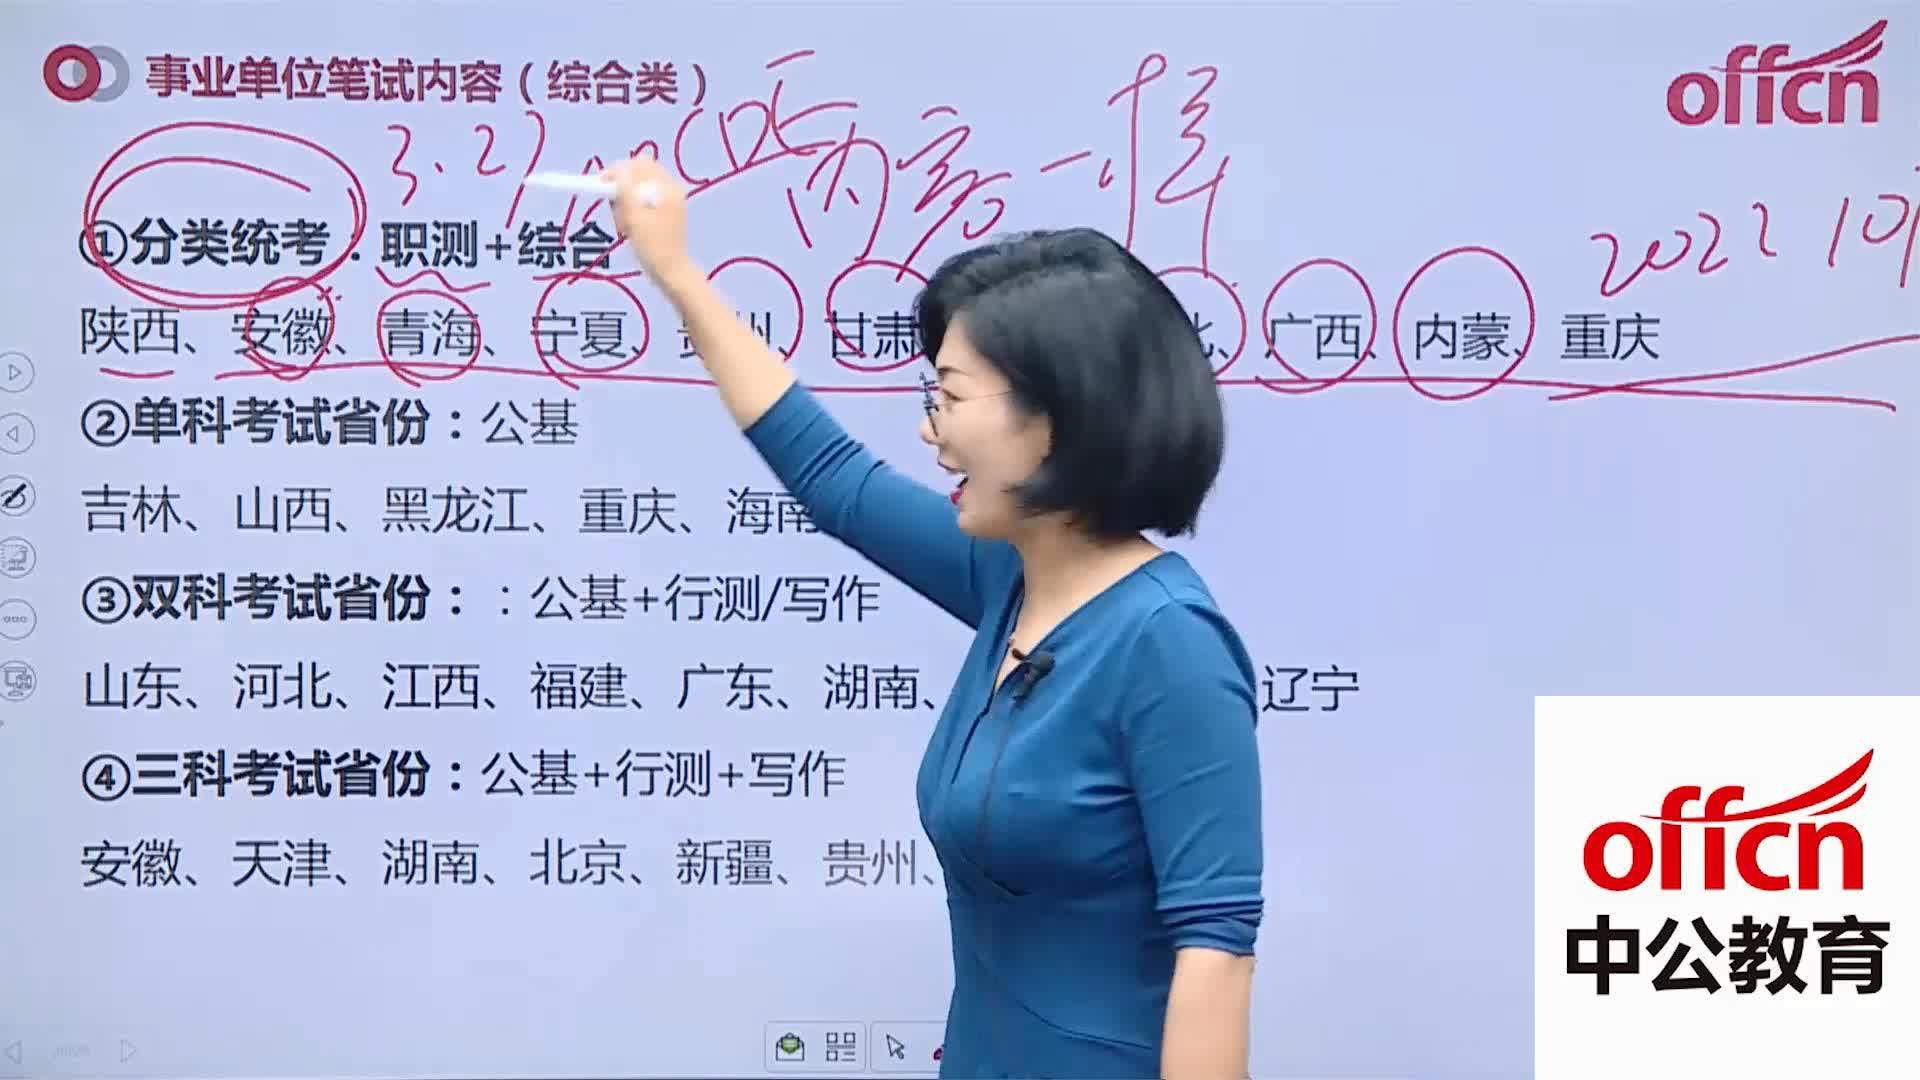 事业单位笔试内容（综合类）
offcn
3.27
内容一样
2022 10
①分类统考：职测+综合
陕西、安徽、青海、宁夏、州、甘肃 北、广西、内蒙、重庆
②单科考试省份：公基
吉林、山西、黑龙江、重庆、海南
③双科考试省份：：公基+行测/写作
山东、河北、江西、福建、广东、湖南、 辽宁
④三科考试省份：公基+行测+写作
安徽、天津、湖南、北京、新疆、贵州、
offcn
中公教育